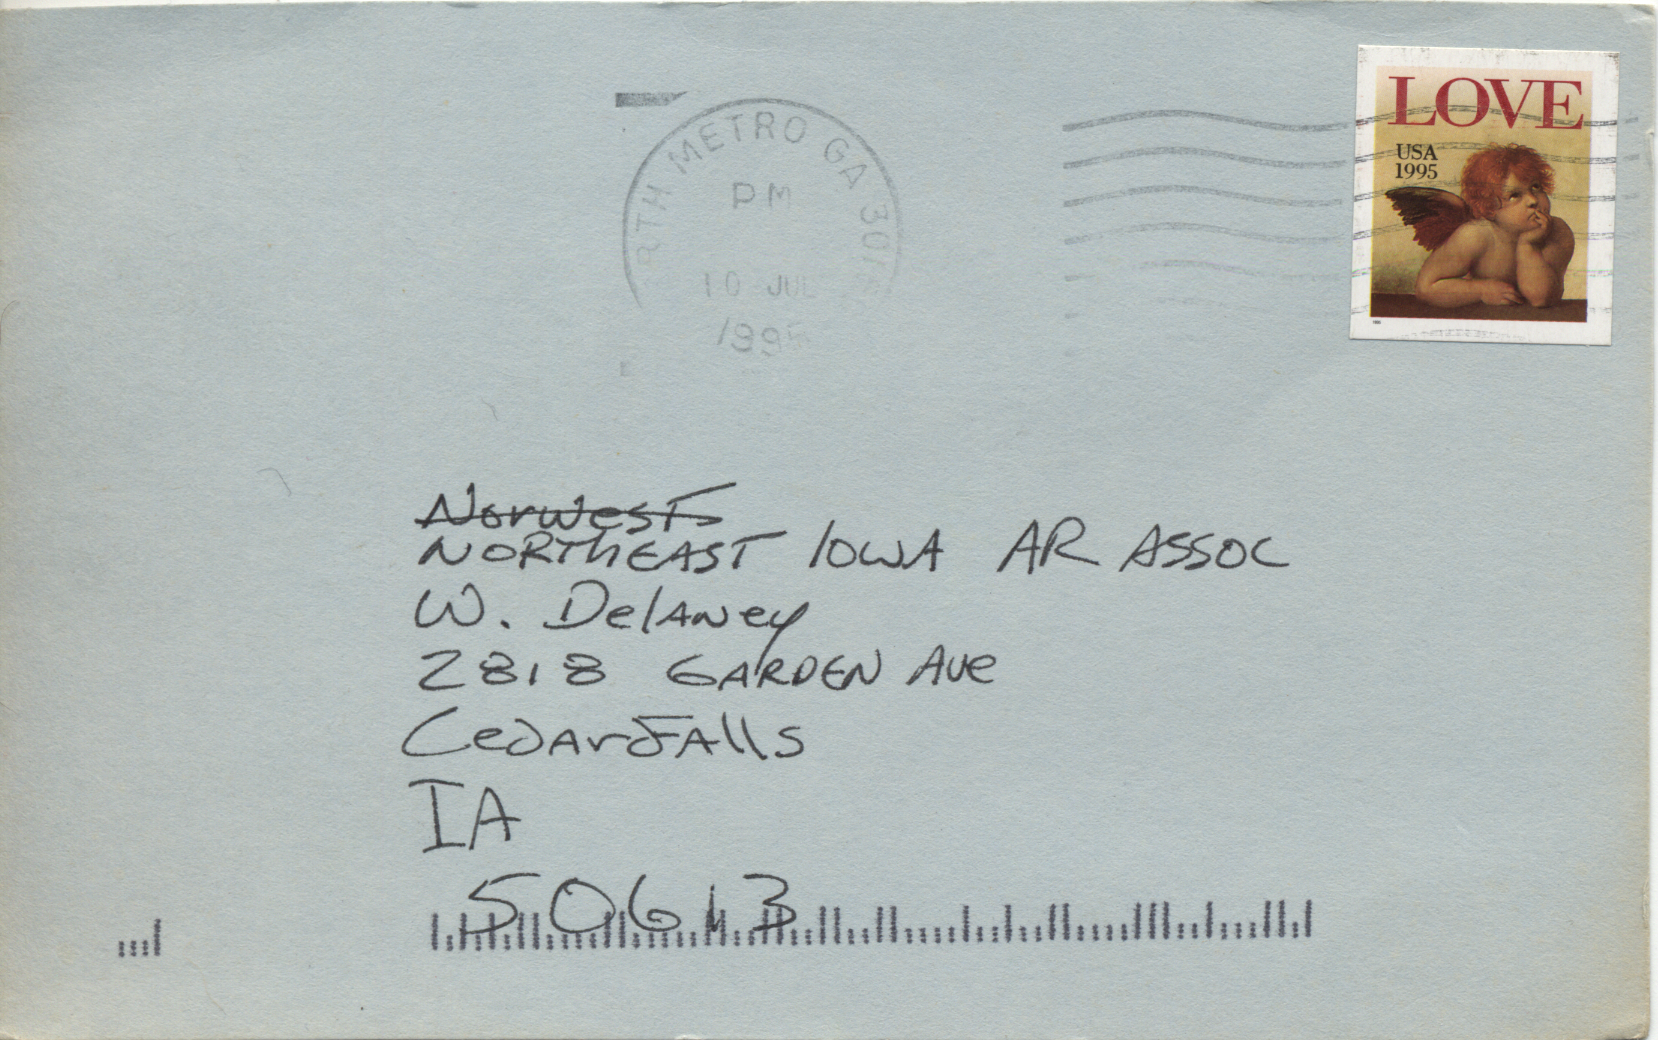 RTH METRO GA 301
PM
10 JUL
199
LOVE
USA
1995
Norwest
NORTHEAST IOWA AR ASSOC
W. Delaney
2818 GARDEN AVE
Cedar Falls
IA
50613